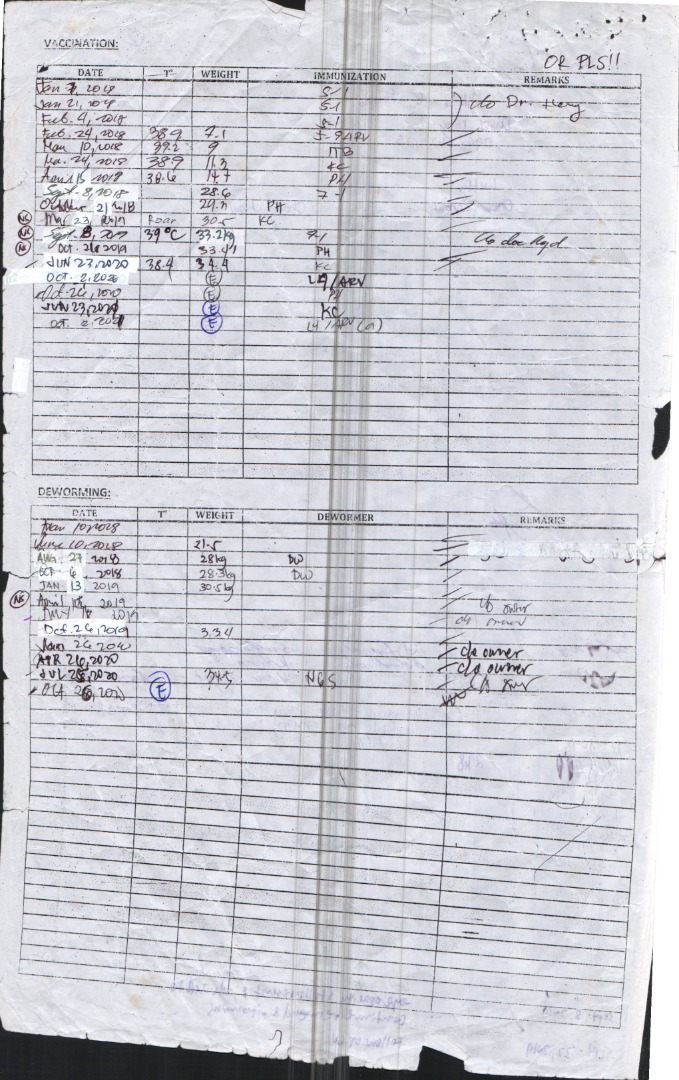 VACCINATION:
OR PLS!!
DATE T° WEIGHT IMMUNIZATION REMARKS
Jan 7, 2018 5-1
Jan 21, 2018 5-1 c/o Dr.
Feb. 4, 2018 5-1
Feb. 24, 2018 38.9 7.1 5-9 ARV
Mar. 10, 2018 39.2 9
Mar. 24, 2018 38.9 11.3 KC
April 15 2018 38.6 14.7 PH
Sept. 8, 2018 28.6 7-1
October 21 2018 29.2 PH
NC Mar 23, 2019 Roar 30.5 KC
NC Sept. 8, 2019 39°C 33.2kg 7-1
NC Oct. 26 2019 33.4 PH
JUN 23, 2020 38.4 34.4 KC
OCT. 2, 2020 E L4/ARV
Oct. 26, 2020 E PH
JUN 23, 2021 E KC
OCT. 2, 2021 E L4/ARV (a)
DEWORMING:
DATE T° WEIGHT DEWORMER REMARKS
June 10, 2018 21.5
AUG. 27 2018 28kg DW
OCT 6, 2018 28.3kg DW
JAN 13 2019 30.5kg
NC April 2019 c/o owner
2019 c/o owner
Oct. 26, 2019 33.4
Jan 26 2020 c/o owner
APR 26, 2020 c/o owner
JUL 26, 2020 34.5 c/o owner
Oct 26, 2020 E